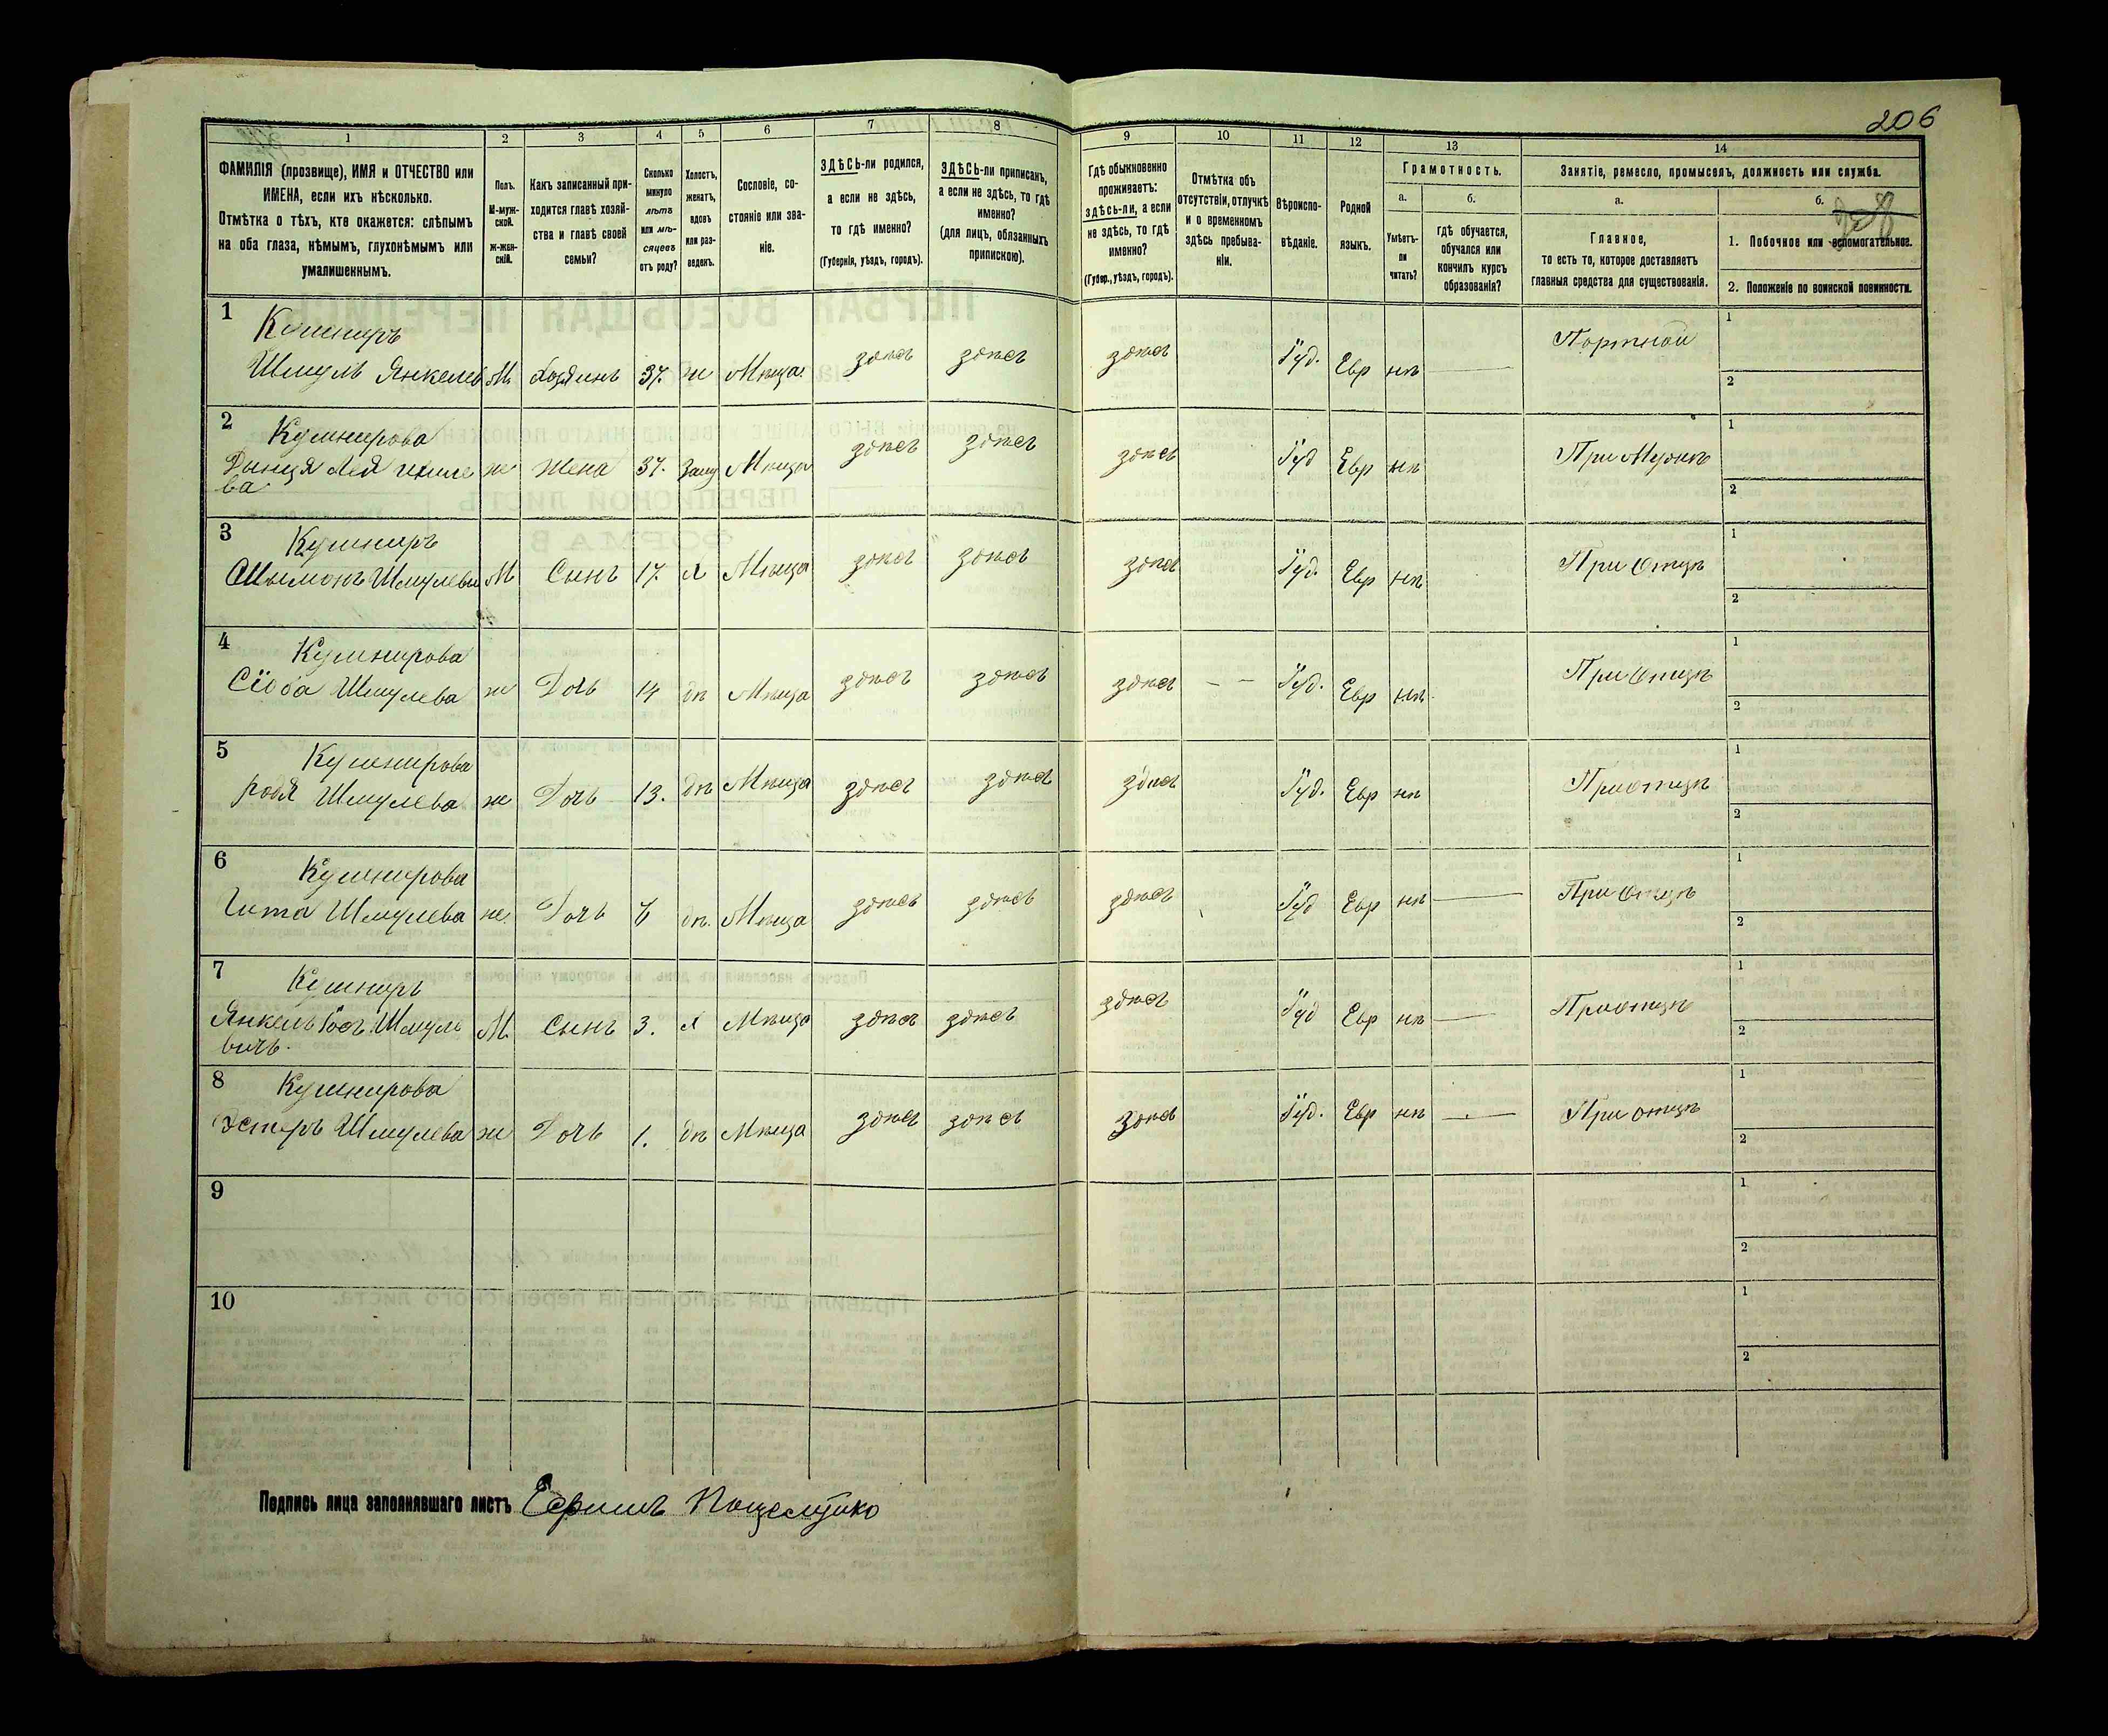 206
1 2 3 4 5 6 7 8 9 10 11 12 13 14
ФАМИЛІЯ (прозвище), ИМЯ и ОТЧЕСТВО или
ИМЕНА, если ихъ нѣсколько.
Отмѣтка о тѣхъ, кто окажется: слѣпымъ
на оба глаза, нѣмымъ, глухонѣмымъ или
умалишеннымъ.
Полъ.
М-муж-
ской.
ж-жен-
скій.
Какъ записанный при-
ходится главѣ хозяй-
ства и главѣ своей
семьи?
Сколько
минуло
лѣтъ
или мѣ-
сяцевъ
отъ роду?
Холостъ,
женатъ,
вдовъ
или раз-
веденъ.
Сословіе, со-
стояніе или зва-
ніе.
ЗДѢСЬ-ли родился,
а если не здѣсь,
то гдѣ именно?
(Губернія, уѣздъ, городъ).
ЗДѢСЬ-ли приписанъ,
а если не здѣсь, то гдѣ
именно?
(для лицъ, обязанныхъ
припискою).
Гдѣ обыкновенно
проживаетъ:
здѣсь-ли, а если
не здѣсь, то гдѣ
именно?
(Губер., уѣздъ, городъ).
Отмѣтка объ
отсутствіи, отлучкѣ
и о временномъ
здѣсь пребыва-
ніи.
Вѣроиспо-
вѣданіе.
Родной
языкъ.
Грамотность.
а.
Умѣетъ-
ли
читать?
б.
гдѣ обучается,
обучался или
кончилъ курсъ
образованія?
Занятіе, ремесло, промыселъ, должность или служба.
а.
Главное,
то есть то, которое доставляетъ
главныя средства для существованія.
б.
1. Побочное или вспомогательное.
2. Положеніе по воинской повинности.
1 Кушниръ
Шмуль Янкелев М Хозяинъ 37. ж Мѣща. здѣсь здѣсь здѣсь Іуд. Евр нѣ Портной 1
2
2 Кушнирова
Лея ж Жена 37. Заму Мѣща здѣсь здѣсь здѣсь Іуд Евр нѣ При Мужѣ 1
ва 2
3 Кушниръ
Шмулеви М Сынъ 17. х Мѣща здѣсь здѣсь здѣсь Іуд. Евр нѣ При Отцѣ 1
2
4 Кушнирова
Сіоба Шмулева ж Дочь 14 дѣ Мѣща здѣсь здѣсь здѣсь Іуд. Евр нѣ При Отцѣ 1
2
5 Кушнирова
Шмулева ж Дочь 13. дѣ Мѣща здѣсь здѣсь здѣсь Іуд. Евр нѣ При отцѣ 1
2
6 Кушнирова
Гита Шмулева ж. Дочь дѣ. Мѣща здѣсь здѣсь здѣсь Іуд Евр нѣ При Отцѣ 1
2
7 Кушниръ
Янкель Іосъ Шмуле М Сынъ 3. х Мѣща здѣсь здѣсь здѣсь Іуд Евр нѣ При отцѣ 1
вичъ. 2
8 Кушнирова
Эстеръ Шмулева ж Дочь 1. дѣ Мѣща здѣсь здѣсь здѣсь Іуд. Евр нѣ При отцѣ 1
2
9 1
2
10 1
2
Подпись лица заполнявшаго листъ